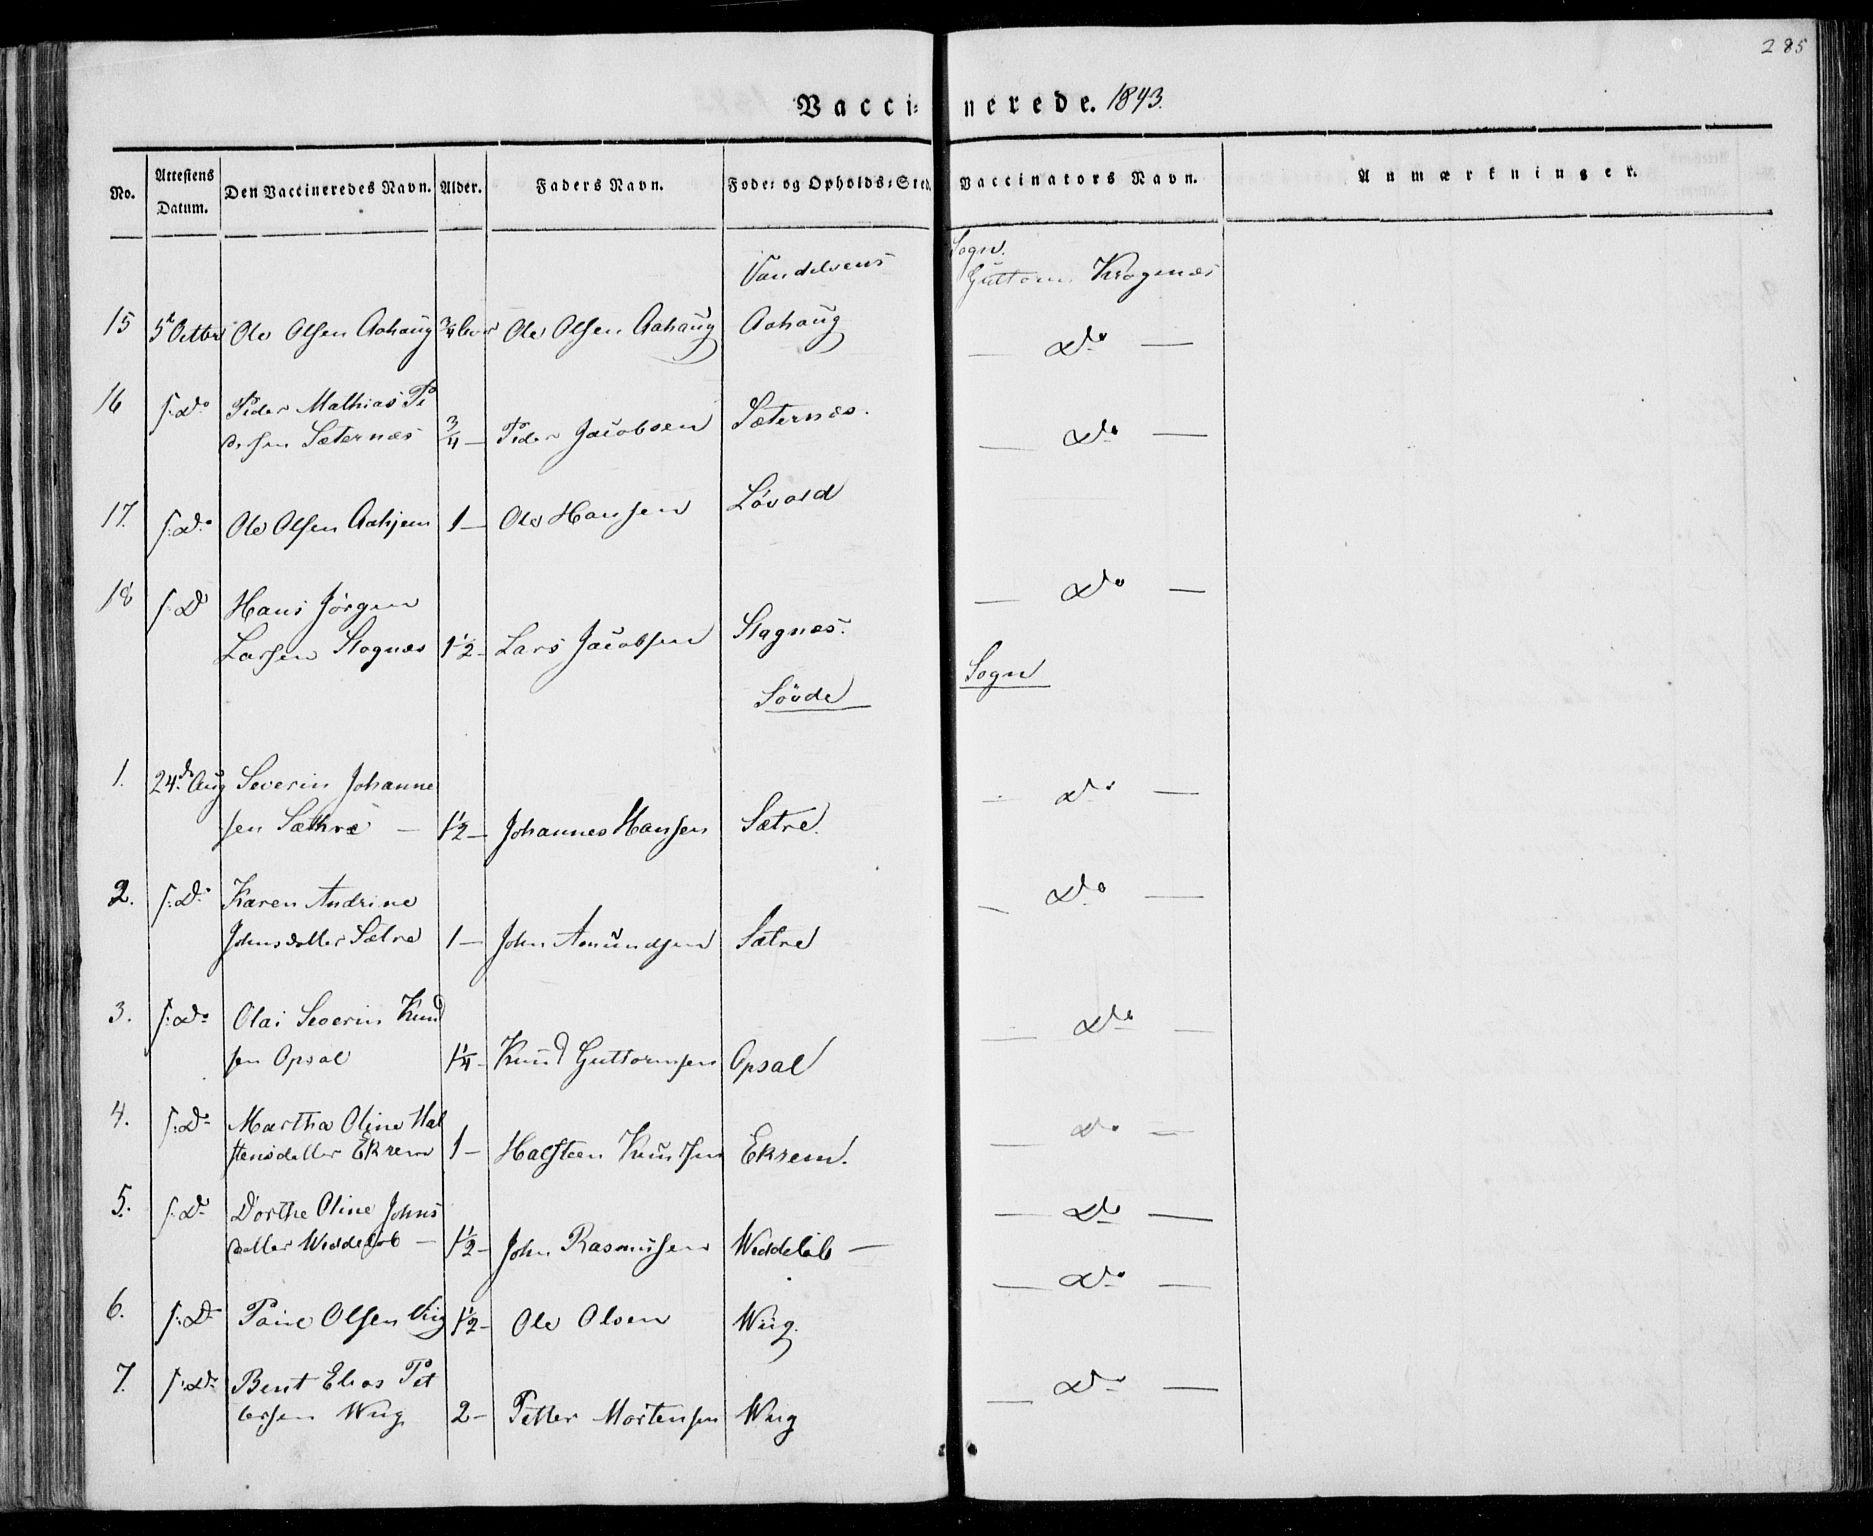 285
Vacci= nerede. 1843.
No. Attestens Datum. Den Vaccineredes Navn. Alder. Faders Navn. Føde= og Opholds=Sted. Vaccinators Navn. Anmærkninger.
Vandelvens Sogn.
Guttorm Krognæs
15 5te Octbr Ole Olsen Aahaug 3/4 Ole Olsen Aahaug Aahaug — Do —
16 s: Do Peder Mathias Pe
dersen Sæternæs 3/4 — Peder Jacobsen Sæternæs. — Do —
17. s: Do Ole Olsen Aahjem 1 — Ole Hansen Løvold
18 s: D Hans Jørgen — Do —
Larsen Slagnæs 1 1/2 - Lars Jacobsen Slagnæs.
Søvde Sogn
1. 24de Aug Severin Johanne — Do —
sen Sæthre — 1 1/2 — Johannes Hansen Sætre.
2. s: Do Karen Andrine — Do —
Johnsdatter Sætre 1 — John Amundsen Sætre
3. s: Do Olai Severin Knud — Do —
sen Opsal 1 1/4 - Knud Guttormsen Opsal
4. s: Do Martha Oline Hal — Do —
stensdatter Eksem 1 — Halsteen Knudsen Eksem.
5. s: Do Dorthe Oline Johns — Do —
datter Weddeløb — 1 1/2 - John Rasmusen Weddeløb —
6. s: D Poul Olsen Viig 1 1/2 - Ole Olsen Wiig. — Do —
7. s: Do Bent Elias Pet — Do —
tersen Wiig 2 - Petter Mortensen Wiig